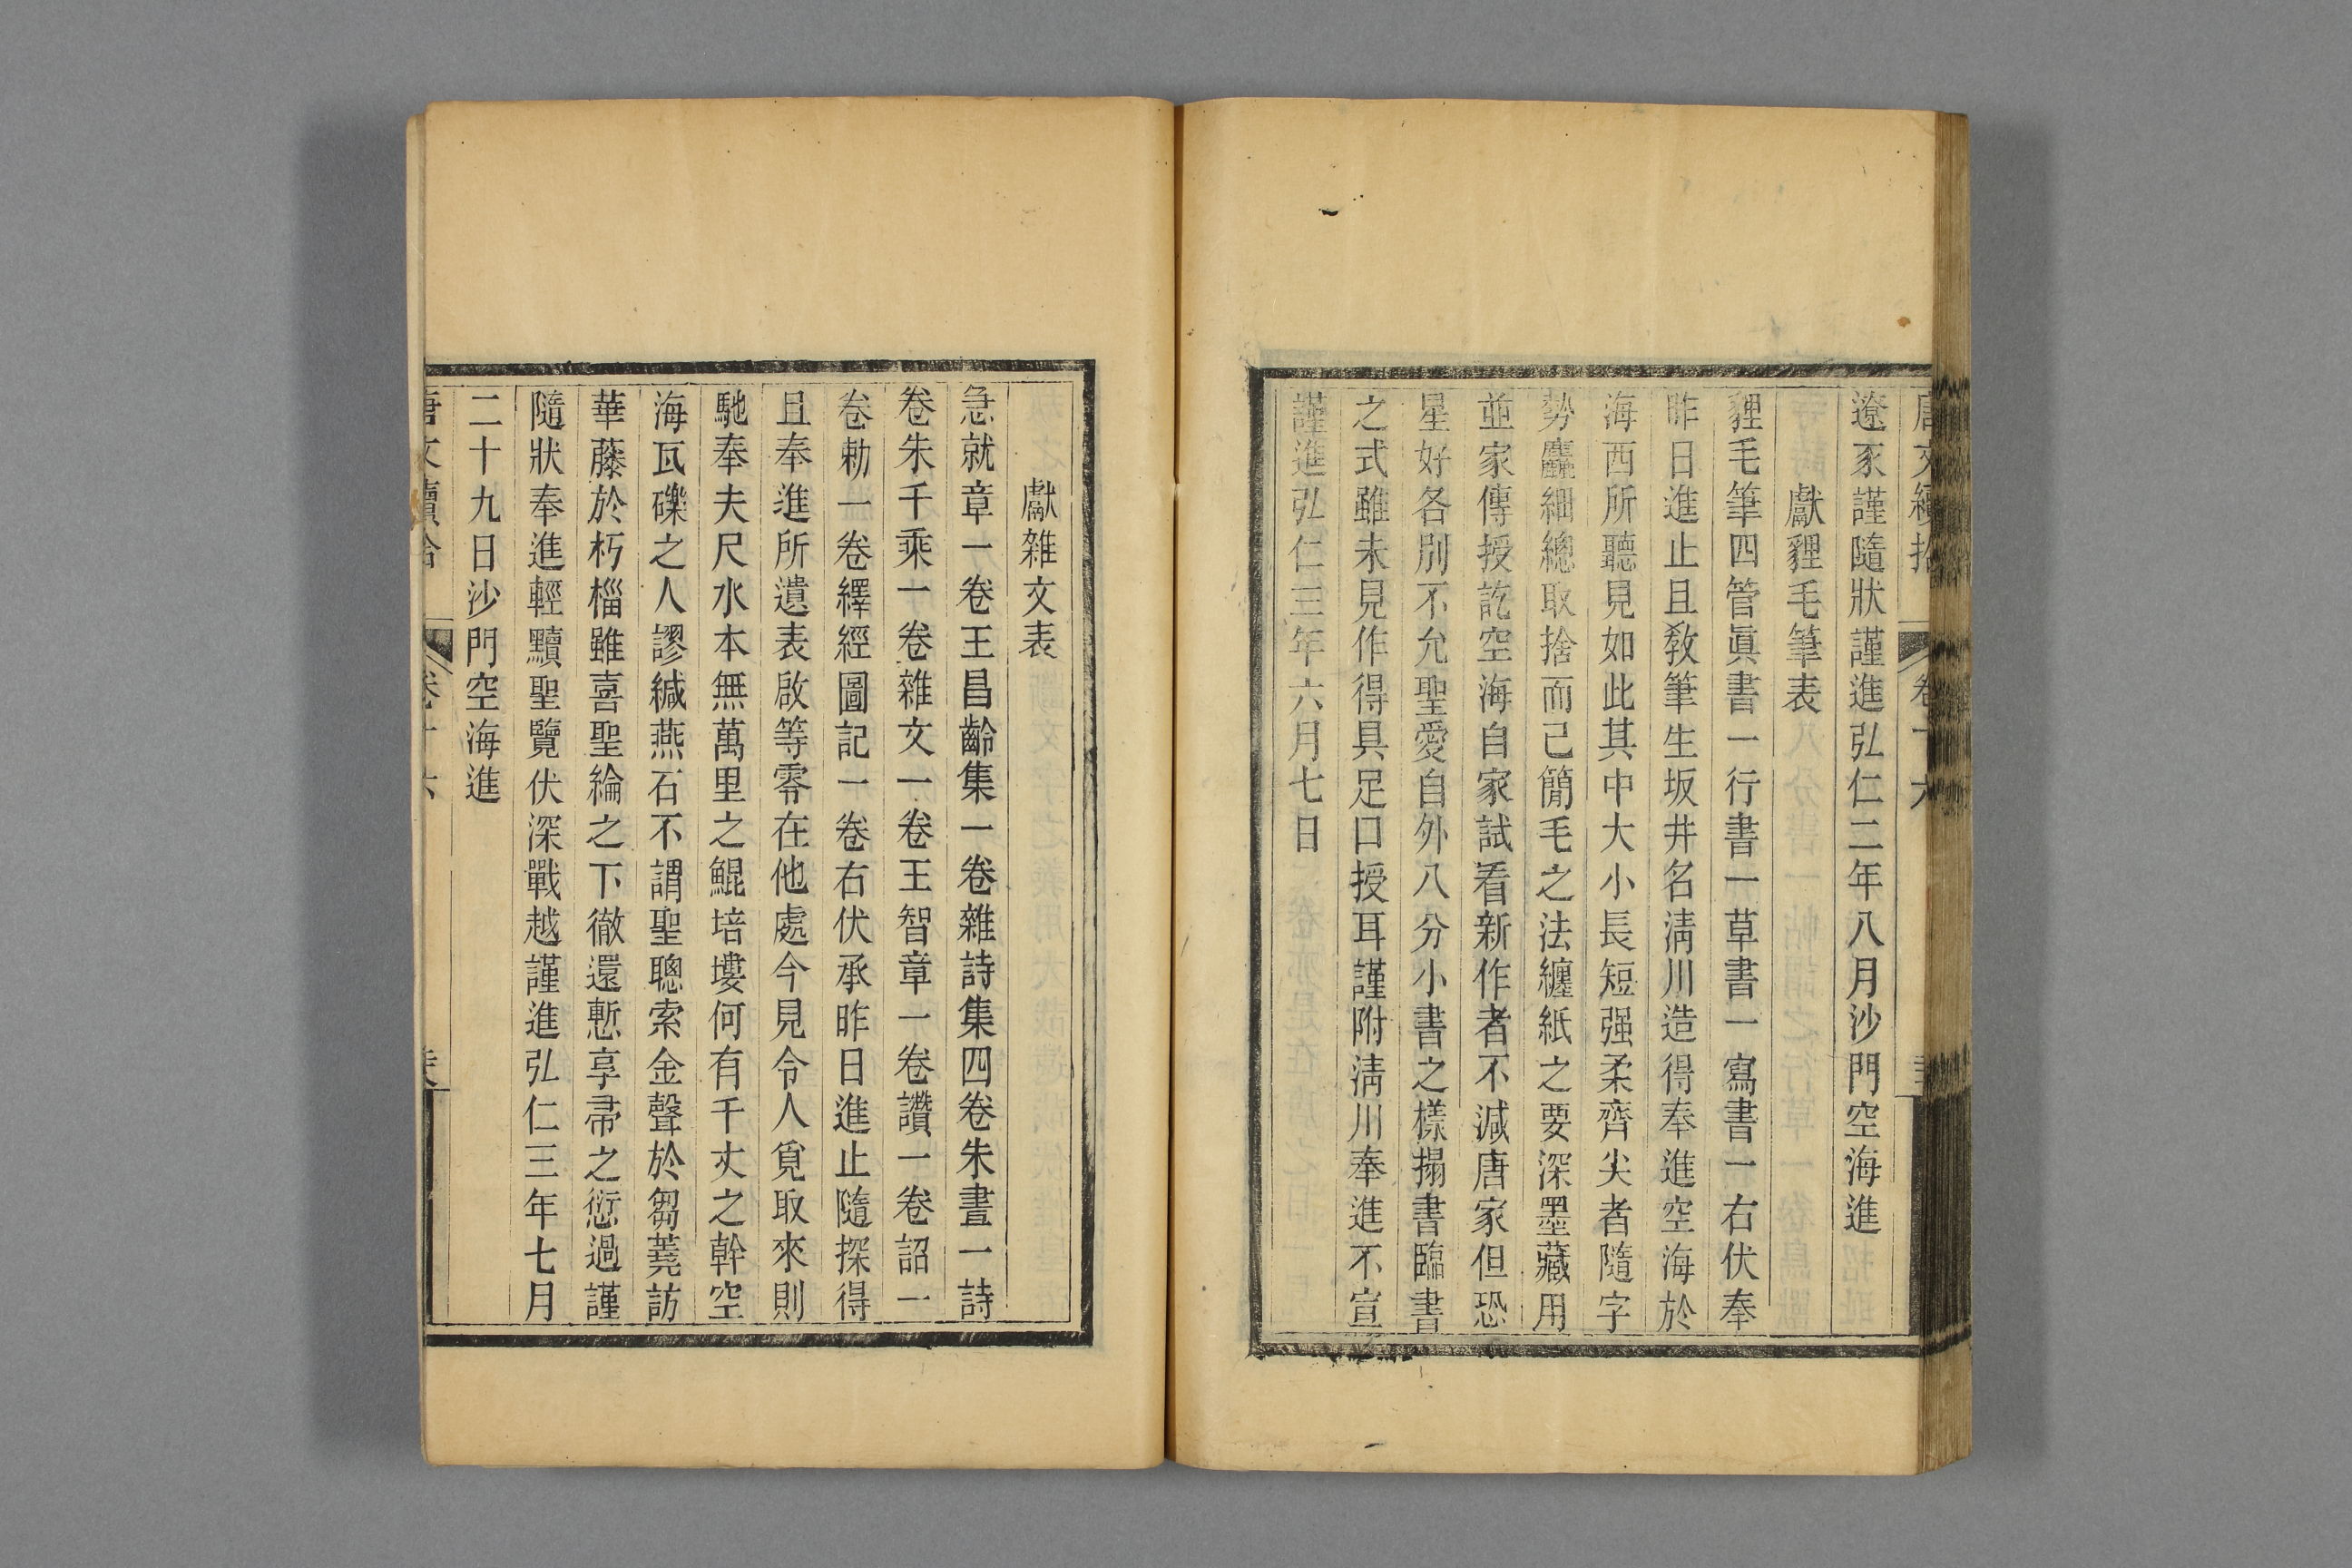 唐文續拾 卷十六
遼豕謹隨狀謹進弘仁二年八月沙門空海進
獻貍毛筆表
貍毛筆四管眞書一行書一草書一寫書一右伏奉
昨日進止且敎筆生坂井名淸川造得奉進空海於
海西所聽見如此其中大小長短强柔齊尖者隨字
勢麤細總取捨而已簡毛之法纏紙之要深墨藏用
並家傳授訖空海自家試看新作者不減唐家但恐
星好各別不允聖愛自外八分小書之樣搨書臨書
之式雖未見作得具足口授耳謹附淸川奉進不宣
謹進弘仁三年六月七日
獻雜文表
急就章一卷王昌齡集一卷雜詩集四卷朱晝一詩
卷朱千乘一卷雜文一卷王智章一卷讚一卷詔一
卷勅一卷繹經圖記一卷右伏承昨日進止隨探得
且奉進所遺表啟等零在他處今見令人覓取來則
馳奉夫尺水本無萬里之鯤培塿何有千丈之幹空
海瓦礫之人謬緘燕石不謂聖聰索金聲於芻蕘訪
華藤於朽椔雖喜聖綸之下徹還慙享帚之愆過謹
隨狀奉進輕黷聖覽伏深戰越謹進弘仁三年七月
二十九日沙門空海進
唐文續拾 卷十六